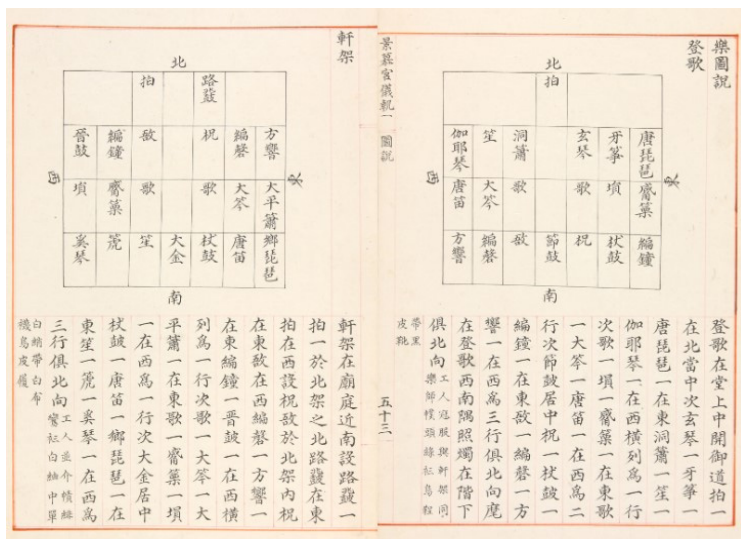 樂圖說
登歌
北
拍
唐琵琶 牙箏 玄琴 洞簫 笙 伽耶琴
東
西
觱篥 塤 歌 歌 大笒 唐笛
編鐘 杖鼓 柷 節鼓 敔 編磬 方響
南
登歌在堂上中開御道拍一
在北當中次玄琴一牙箏一
唐琵琶一在東洞簫一笙一
伽耶琴一在西橫列爲一行
次歌一塤一觱篥一在東歌
一大笒一唐笛一在西爲二
行次節鼓居中柷一杖鼓一
編鐘一在東敔一編磬一方
響一在西爲三行俱北向麾
在登歌西南隅照燭在階下
俱北向 工人冠服與軒架同
樂師幞頭綠紅烏鞓
帶黑
皮靴
景慕宮儀軌一 圖說 五十三
軒架
北
路鼓 拍
方響 編磬 柷 敔 編鐘 晉鼓
東
西
大平簫 大笒 歌 歌 觱篥 塤
鄉琵琶 唐笛 杖鼓 大金 笙 箎 奚琴
南
軒架在廟庭近南設路鼓一
拍一於北架之北路鼓在東
拍在西設柷敔於北架內柷
在東敔在西編磬一方響一
在東編鐘一晉鼓一在西橫
列爲一行次歌一大笒一大
平簫一在東歌一觱篥一塤
一在西爲一行次大金居中
杖鼓一唐笛一鄉琵琶一在
東笙一箎一奚琴一在西爲
三行俱北向 工人並介幘緋
白紬中單
白綃帶白布
襪烏皮履